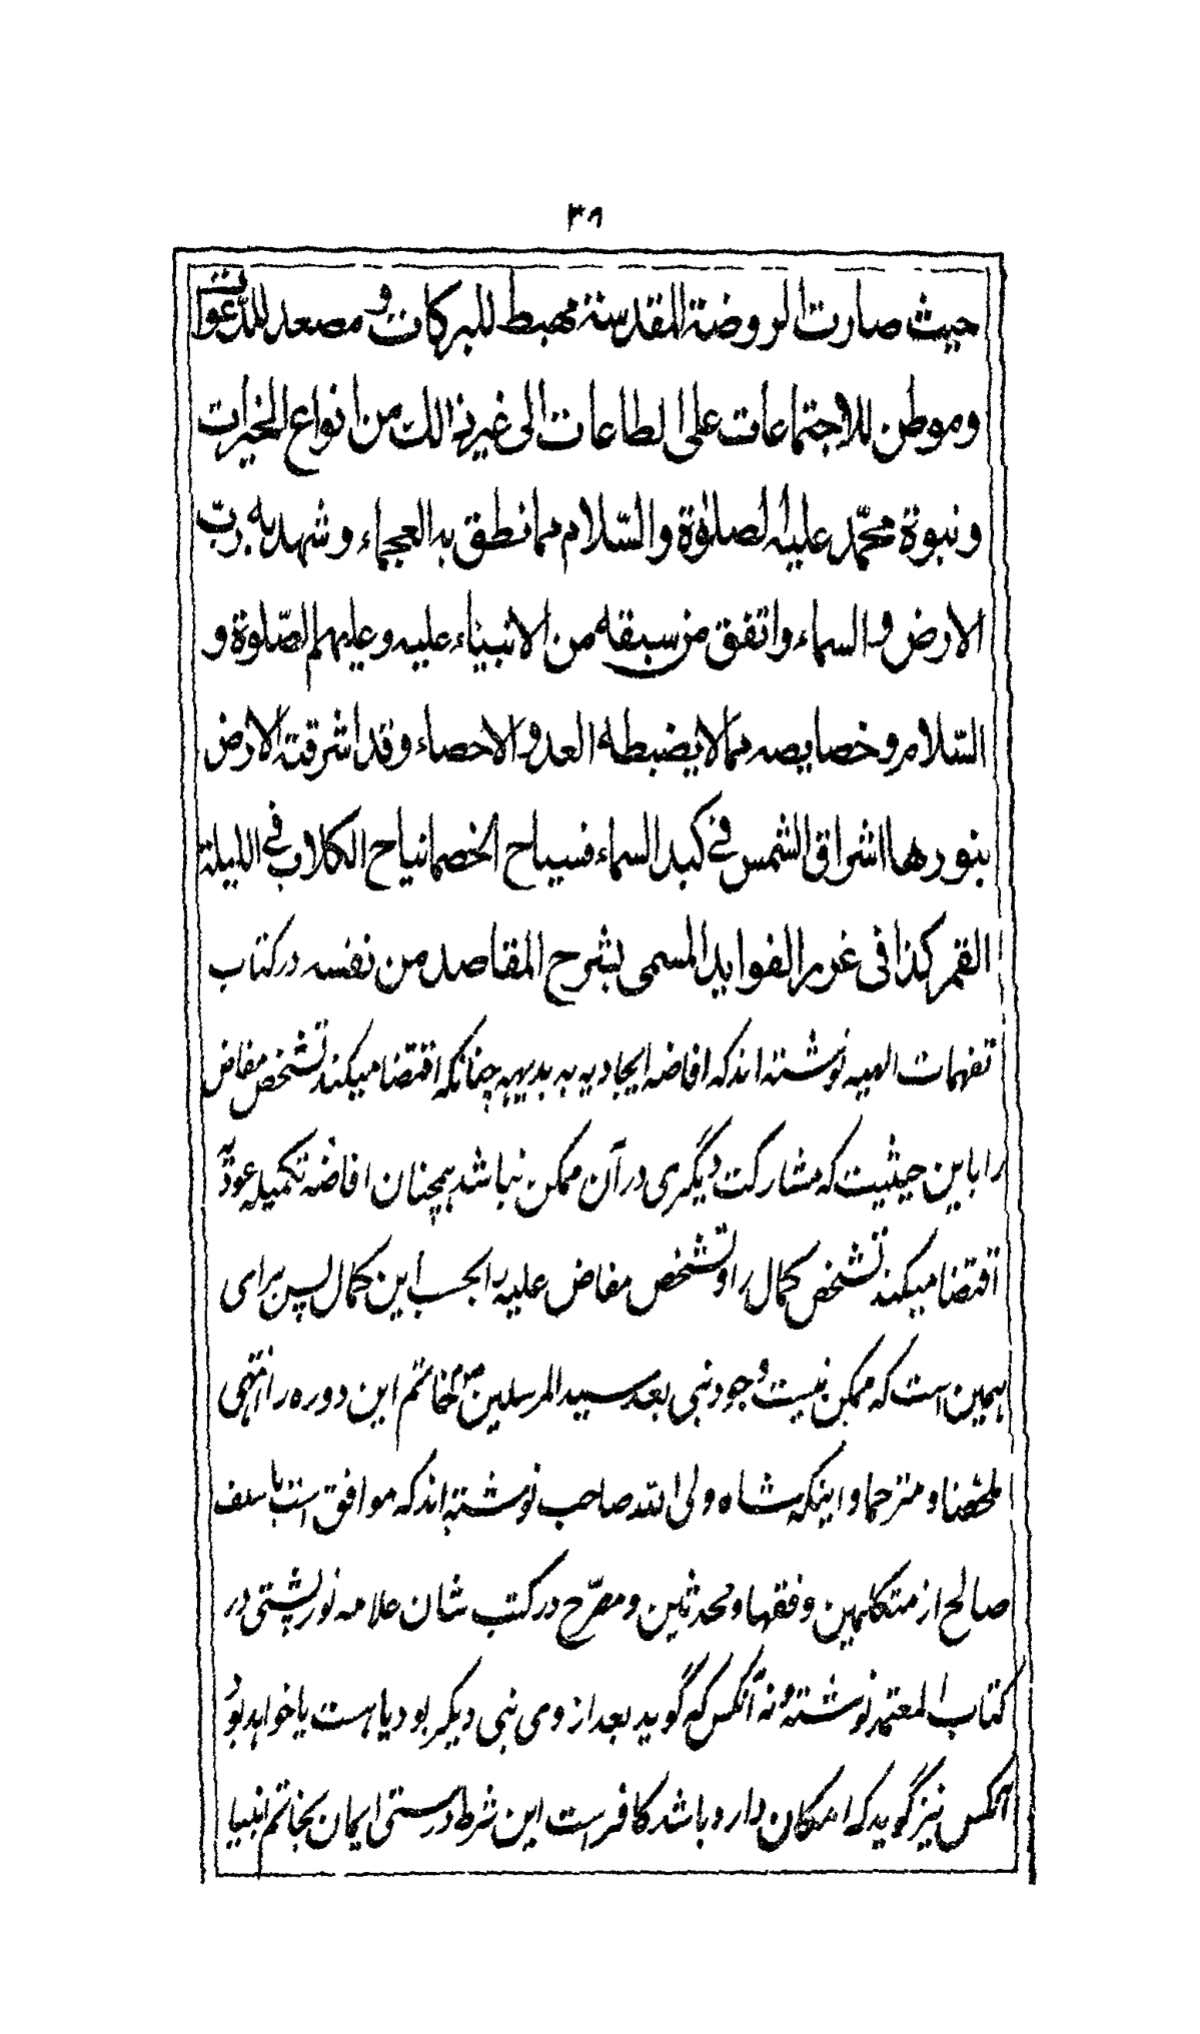 ٣٨
حيث صارت الروضة المقدسة مهبط للبركات و مصعد للدعوات
وموطن للاجتماعات على الطاعات الى غير ذالك من انواع الخيرات
و نبوة محمّد عليه الصلوٰة والسّلام مما نطق به العجماء و شهد به ربّ
الارض و السماء واتفق من سبقه من الانبياء عليه وعليهم الصّلوة و
السّلام و خصايصه مما لا يضبطه العد و الاحصاء و قد اشرقت الارض
بنورها اشراق الشمس فى كبد السماء فسياح الخصما نياح الكلاب فى الليلة
القمر كذا فى غرر الفوايد المسمى بشرح المقاصد من نفسه در کتاب
تفهمات الهيه نوشته اند که افاضه ایجادیه به بدیهیه چنانکه اقتضا میکند تشخص مفاض
را باین حیثیت که مشارکت دیگری در آن ممکن نباشد همچنان افاضه تکمیله عودیه
اقتضا میکند تشخص کمال را و تشخص مفاض علیه را بحسب این کمال پس برای
همین است که ممکن نیست وجود نبی بعد سید المرسلین خاتم این دوره را انتهی
ملخصا و مترحما و اینکه شاه ولی الله صاحب نوشته اند که موافق است با سلف
صالح از متکلمین و فقها و محدثین و مصرّح در کتب شان علامه تورپشتی در
کتاب المعتمد نوشته و نه آنکس که گوید بعد از وی نبی دیگر بود یا هست یا خواهد بود
آنکس نیز گوید که امکان دارد باشد کافرست این شرط درستی ایمان بخاتم انبیا